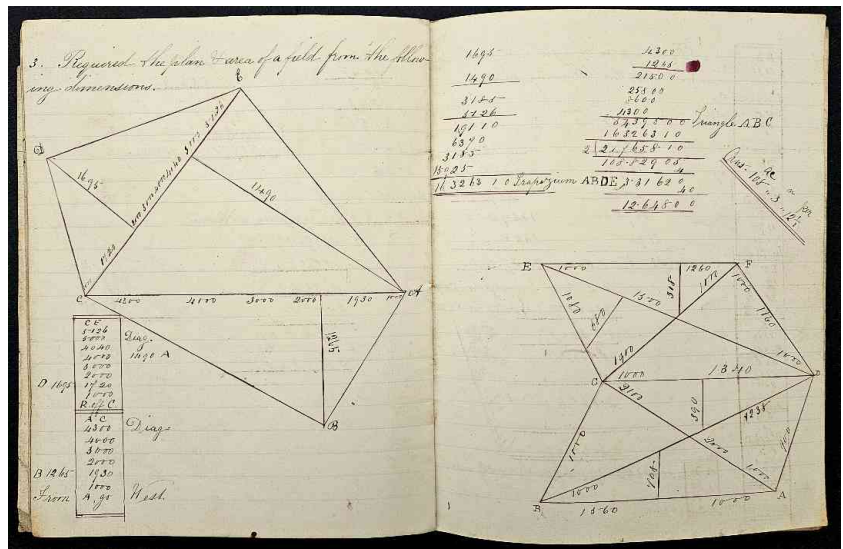 3. Required the plan & area of a field from the follow-
ing dimensions.
E
1695
1490
1720
C
4200 4000 3000 2000 1930 1000 A
1265
B
C E
5126
5000
4040
4000
3000
2000
D 1695 1720
1000
R of C
Diag.
1490 A
A C
4300
4000
3000
2000
B 1265 1930
1000
From A, go West
Diag
1695
1490
3185
5126
19110
6370
3185
15925
16326310 Trapezium ABDE
4300
1265
21500
25800
8600
4300
5439500 Triangle ABC
16326310
2 21765810
108.82905
4
3.31620
40
12.64800
E 1000 1260 F
1080
680
1500
318
1000
1000
1160
1900
1000
C 1000 1340 D
2100
390
4235
1000
2000
900
1000
708
1000
B 1560 1000 A